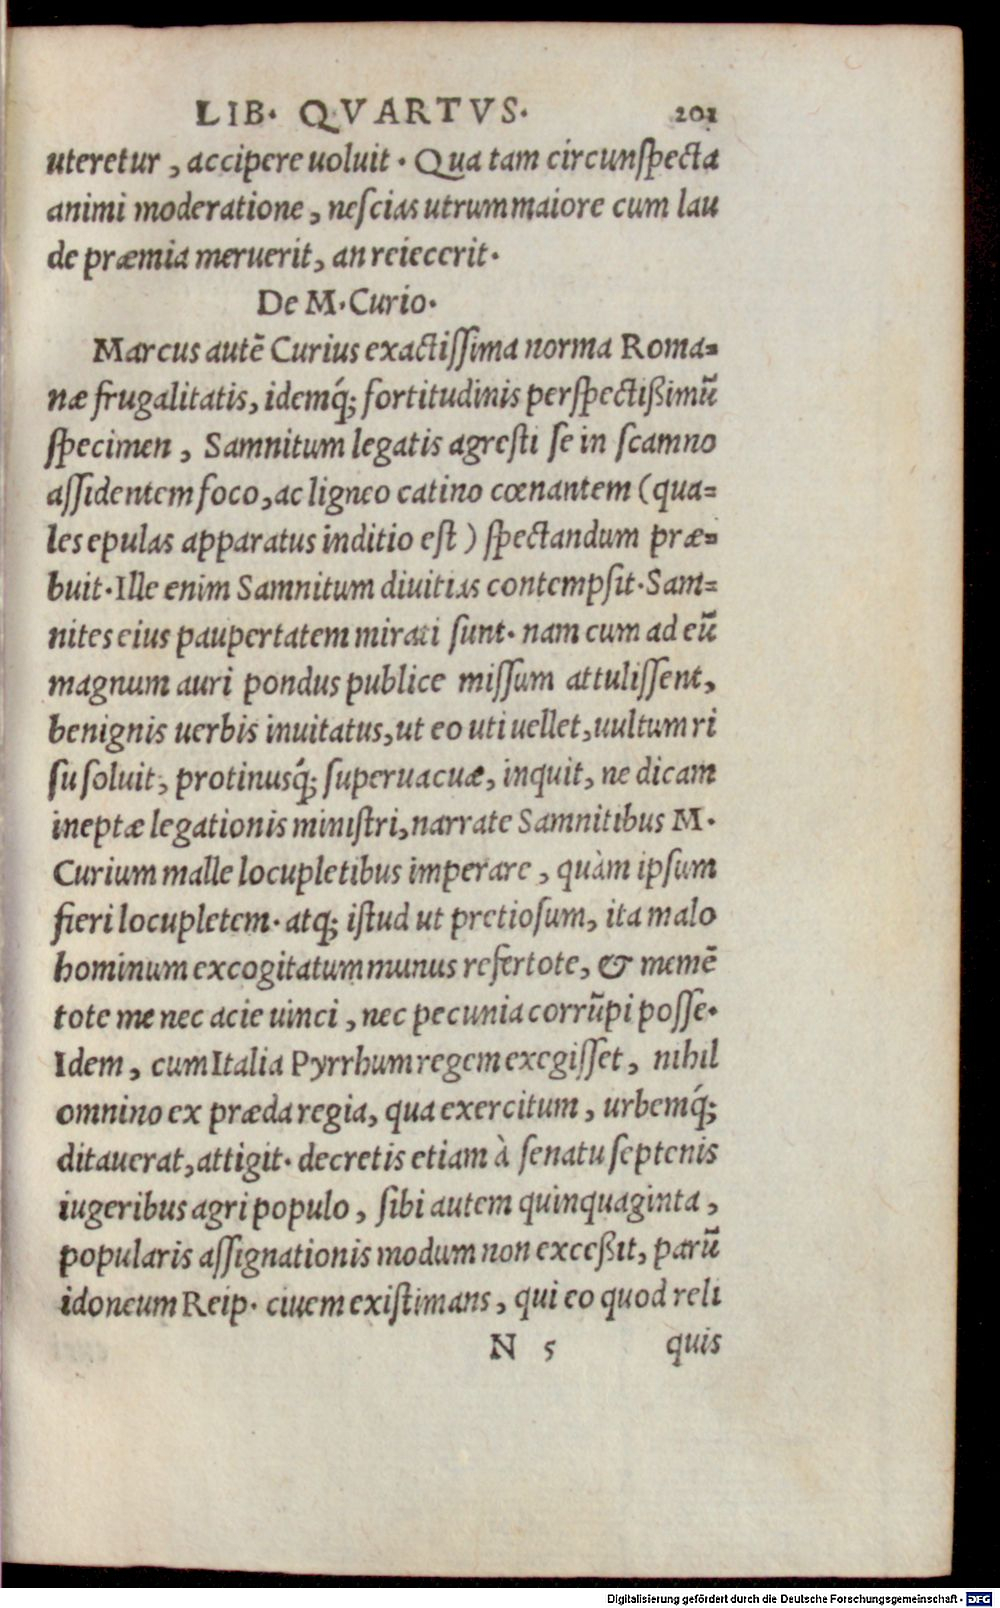 LIB. QVARTVS. 201
uteretur, accipere uoluit. Qua tam circunſpecta
animi moderatione, neſcias utrum maiore cum lau
de præmia meruerit, an reiecerit.
De M. Curio.
Marcus autē Curius exactiſſima norma Roma=
næ frugalitatis, idemq́; fortitudinis perſpectißimū
ſpecimen, Samnitum legatis agreſti ſe in ſcamno
aſſidentem foco, ac ligneo catino cœnantem (qua=
les epulas apparatus inditio eſt) ſpectandum præ=
buit. Ille enim Samnitum diuitias contempſit. Sam=
nites eius paupertatem mirati ſunt. nam cum ad eū
magnum auri pondus publice miſſum attuliſſent,
benignis uerbis inuitatus, ut eo uti uellet, uultum ri
ſu ſoluit, protinusq́; ſuperuacuæ, inquit, ne dicam
ineptæ legationis miniſtri, narrate Samnitibus M.
Curium malle locupletibus imperare, quàm ipſum
fieri locupletem. atq; iſtud ut pretioſum, ita malo
hominum excogitatum munus refertote, & memē
tote me nec acie uinci, nec pecunia corrūpi poſſe.
Idem, cum Italia Pyrrhum regem exegiſſet, nihil
omnino ex præda regia, qua exercitum, urbemq́;
ditauerat, attigit. decretis etiam à ſenatu ſeptenis
iugeribus agri populo, ſibi autem quinquaginta,
popularis aſſignationis modum non exceßit, parū
idoneum Reip. ciuem exiſtimans, qui eo quod reli
N 5 quis
Digitalisierung gefördert durch die Deutsche Forschungsgemeinschaft - DFG